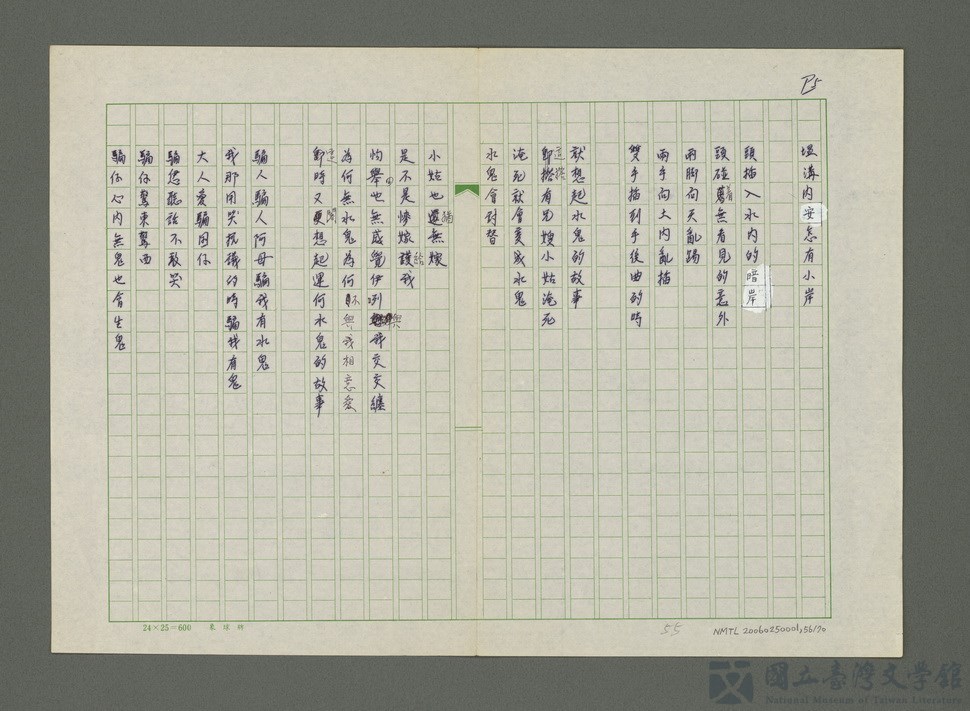 P5
埕溝內安怎有小岸
頭插入水內的暗岸
頭碰着無看見的意外
兩脚向天亂踢
兩手向土內亂插
雙手插到手後曲的時
就想起水鬼的故事
這滾有兄嫂小姑淹死
淹死就會變成水鬼
水鬼會討替
小姑也還無嫁
是不是慘嫁給我
灼舉也無感覺伊咧與我交交纏
為何無水鬼為何與我相意愛
這時又想起運河水鬼的故事
騙人騙人阿母騙我有水鬼
我那用哭抗議的時騙我有鬼
大人愛騙囝仔
騙您聽話不敢哭
騙你驚東驚西
騙你心內無鬼也會生鬼
24×25=600
55
NMTL 20060250001,56/70
國立臺灣文學館
National Museum of Taiwan Literature